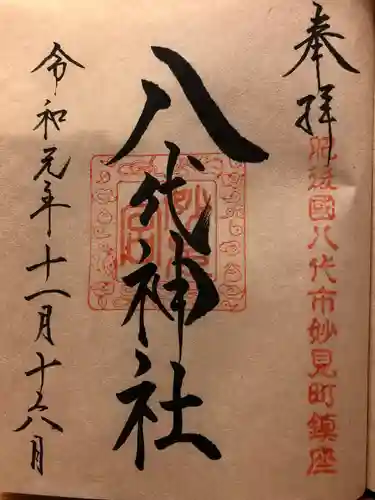 奉拝
肥後國八代市妙見町鎮座
八代神社
令和元年十一月十六日